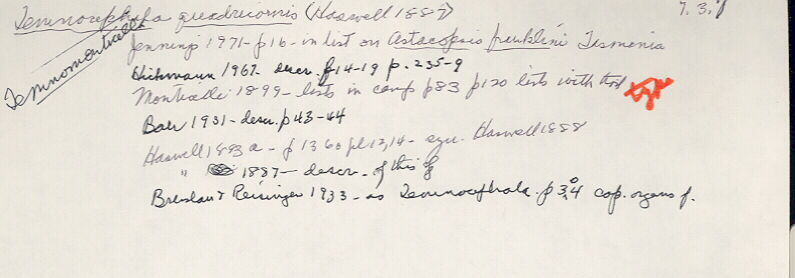 Temnocephala quadricornis (Haswell 1887)
7. 3.
Temnomonticellia
Jennings 1971 - p 16 - in list on Astacopsis franklini Tasmania
Hickmann 1967 - descr. f 14-19 p. 235-9
Monticelli 1899 - lists in comp p83 p120 lists with
Baer 1931 - descr. p 43-44
Haswell 1893a - p 136 pl 12,14 - syn. Haswell 1888
" 1887 - descr. of this f
Breslau & Reisinger 1933 - as Temnocephala. p 304 cop. organs f.